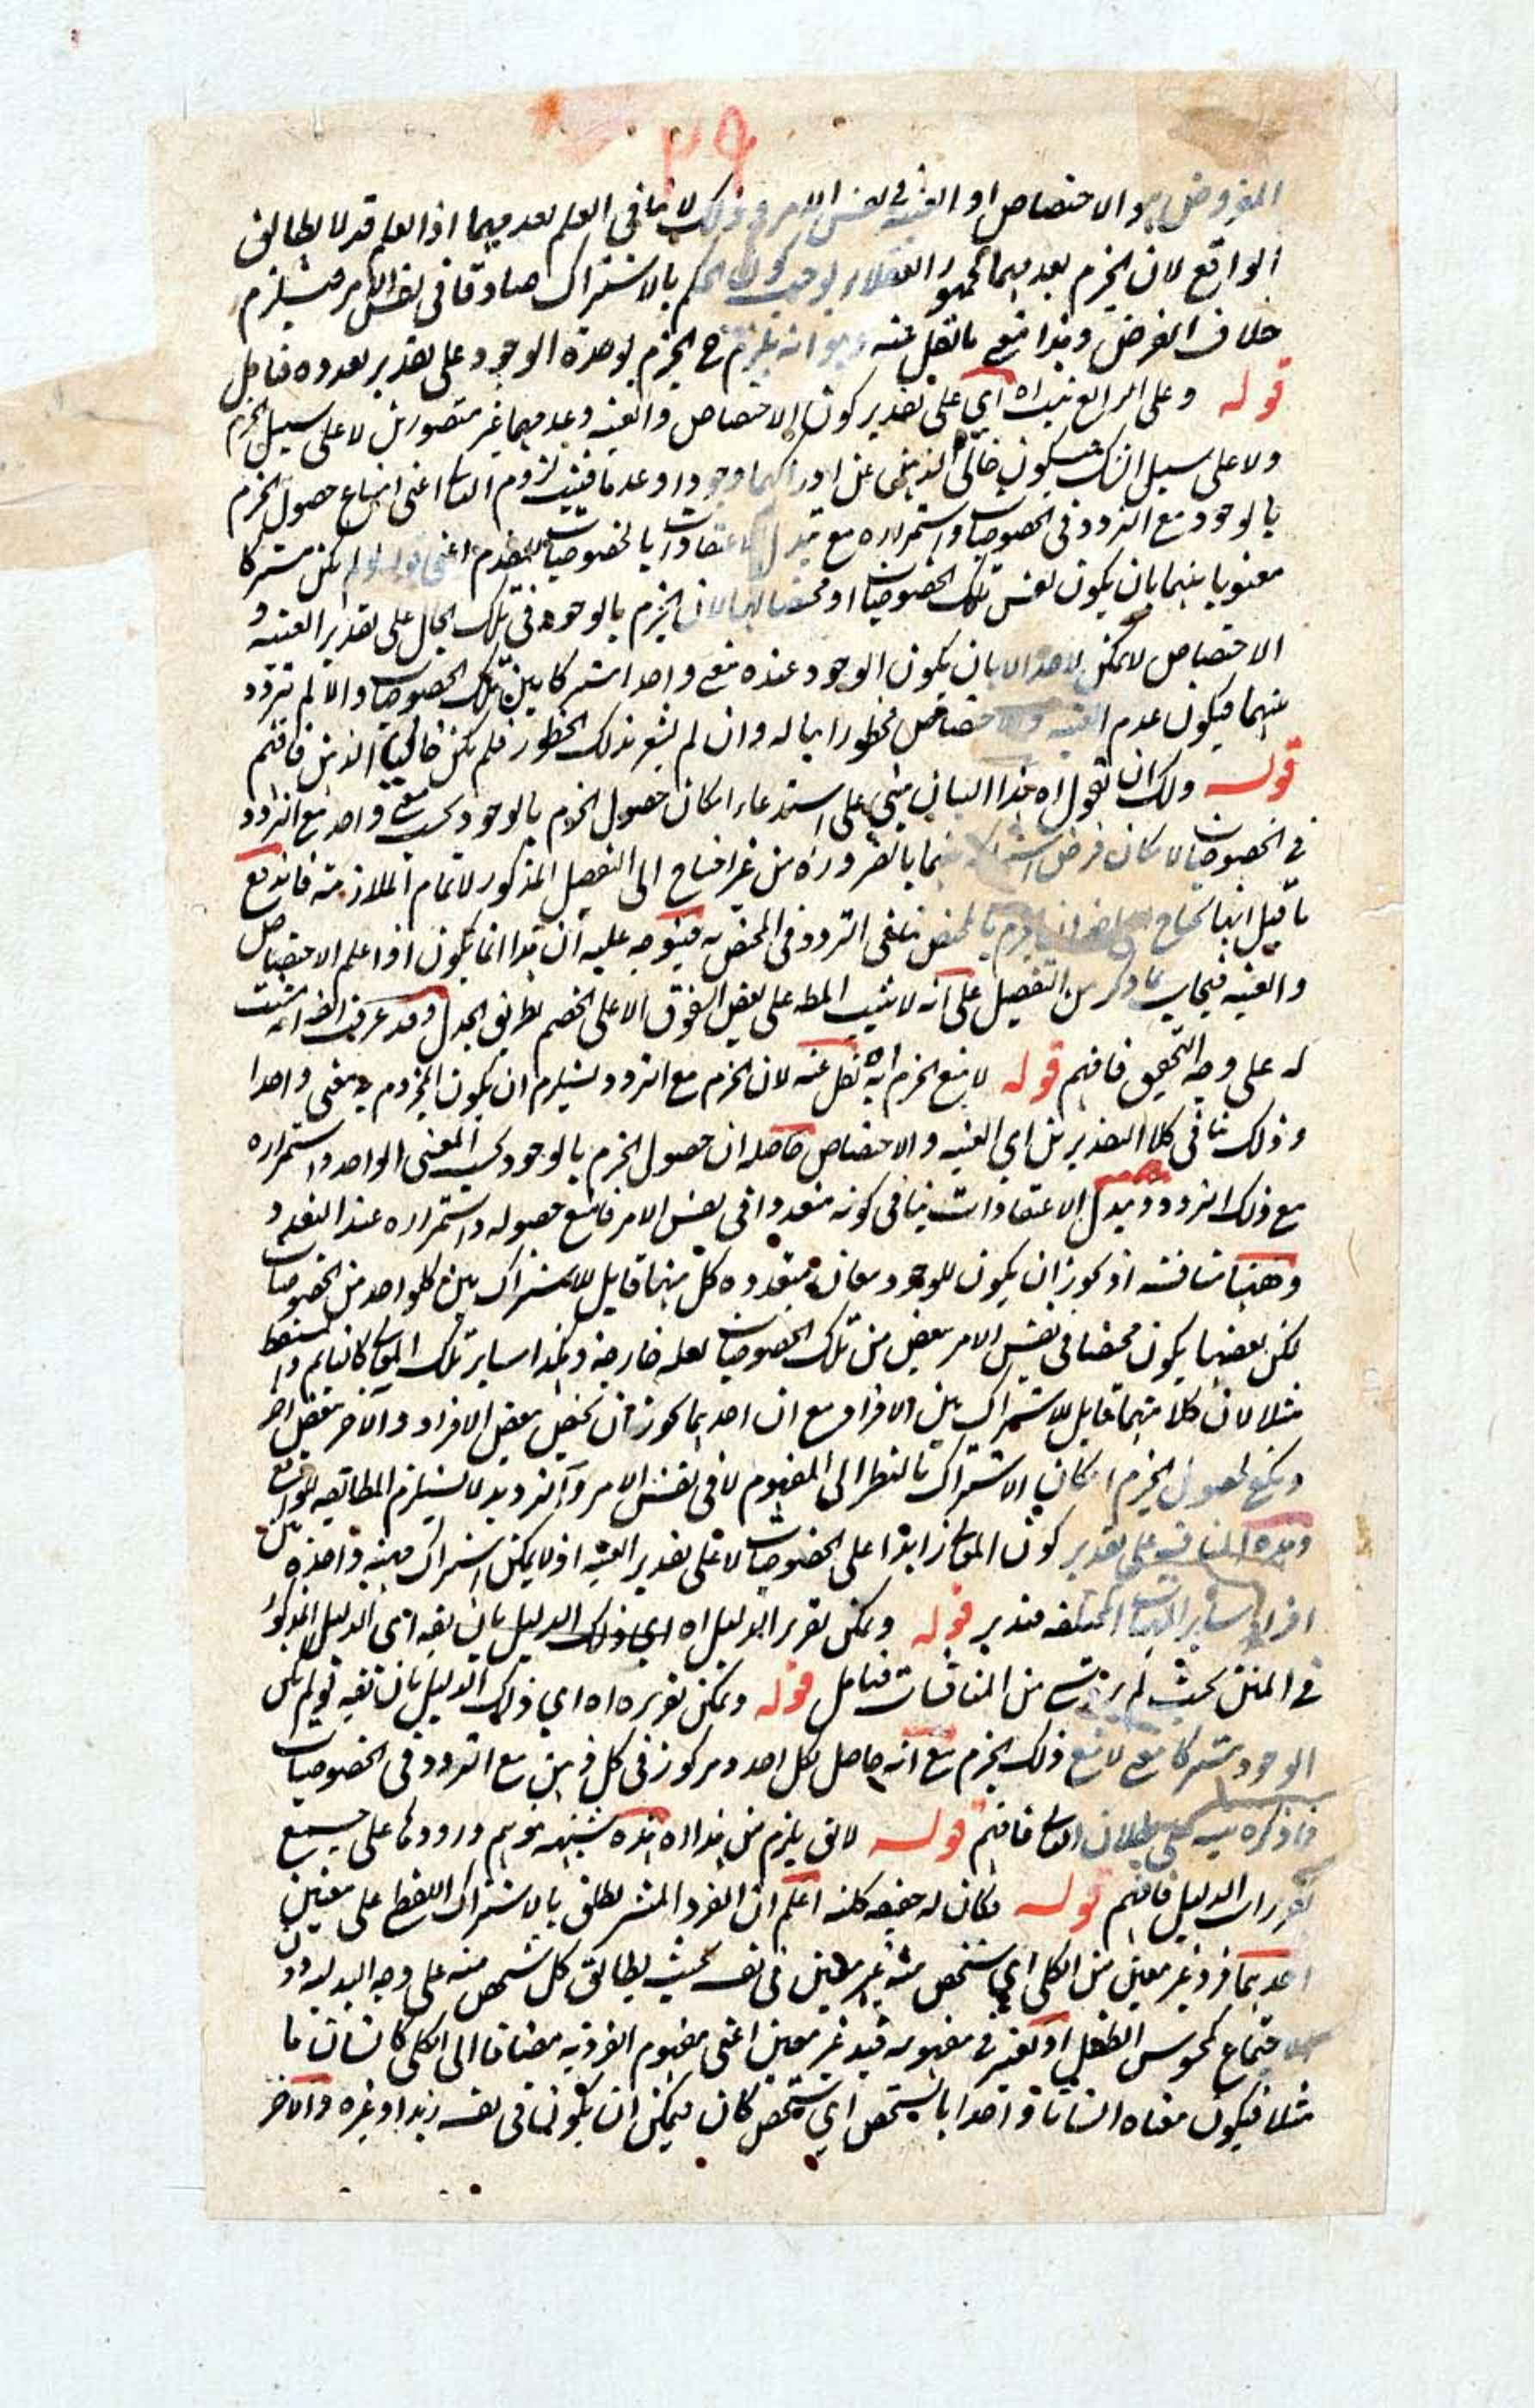 ٢٩
المفروض هو الاختصاص او العينية في نفس الامر وذلك لا ينافي العلم بعدميهما اذ العلم قد لا يطابق
الواقع لان الجزم بعدميهما لجمهور العقلاء يوجب كون الحكم بالاشتراك صادقا في نفس الامر فيستلزم
خلاف الفرض وهذا معنى ما نقل عنه وهو انه يلزم ح الجزم بوحدة الوجود على تقدير تعدده فتامل
قوله وعلى الرابع نبيناه اي على تقدير كون الاختصاص والعينية وعدميهما غير متصورين لا على سبيل الجزم
ولا على سبيل الشك فيكون خالي الذهن عن ادراكهما وجودا وعدما فنبين لزوم التالى اعني امتناع حصول الجزم
بالوجود مع التردد في الخصوصيات واستمراره مع تبدل الاعتقادات بالخصوصيات للمقدم اعني قوله لو لم يكن مشتركا
معنويا بينهما بان يكون نفس تلك الخصوصيات او مختصا بها لان الجزم بالوجود في تلك الحال على تقدير العينية و
الاختصاص لا يمكن لاحد الا بان يكون الوجود عنده معنى واحدا مشتركا بين تلك الخصوصيات والا لم تردد
عنهما فيكون عدم العينية والاختصاص مخطورا بباله وان لم يشعر بذلك الخطور فلم يكن خالي الذهن فافهم
قوله ولك ان تقول اه هذا البيان مبني على استدعاء امكان حصول الجزم بالوجود بحسب معنى واحد مع التردد
في الخصوصيات لامكان فرض اشتراكه بينهما بالضرورة من غير احتياج الى التفصيل المذكور لاتمام الملازمة فاندفع
ما قيل انها تحتاج الجزم بالمختص ينافي التردد في المختص به فيتوجه عليه ان هذا انما يكون اذا علم الاختصاص
والعينية فيجاب بما ذكر من التفصيل على انه لا يثبت المط على بعض الفرق الا على الخصم بطريق الجدل وقد عرفت انفا انه مثبت
له على وجه التحقيق فافهم قوله لامتنع الجزم اه نقل عنه لان الجزم مع التردد يستلزم ان يكون المجزوم به معنى واحدا
وذلك ينافي كلا التقديرين اي العينية والاختصاص حاصله ان حصول الجزم بالوجود بحسب المعنى الواحد واستمراره
مع ذلك التردد وتبدل الاعتقادات ينافي كونه متعددا في نفس الامر فامتنع حصوله واستمراره عند التعدد
وههنا مناقشة اذ يجوز ان يكون للوجود معان متعددة كل منها قابل للاشتراك بين كل واحد من الخصوصيات
لكن بعضها يكون مختصا في نفس الامر ببعض من تلك الخصوصيات لعلة خارجة وهكذا ساير تلك المعاني كالنايم والمستيقظ
مثلا لان كلا منهما قابل للاشتراك بين الافراد مع ان احدهما يجوز ان يختص ببعض الافراد والآخر ببعض اخر
ويكفي لحصول الجزم امكان الاشتراك بالنظر الى المفهوم لا في نفس الامر والترديد لا يستلزم المطابقة للواقع
وهذه المنافية على تقدير كون المعاني زايدا على الخصوصيات لا على تقدير العينية اذ لا يمكن اشتراك مهية واحدة بين
افراد ساير المهيات المختلفة فتدبر قوله ويمكن تقرير الدليل اه اي ذلك الدليل بان يقه اي الدليل المذكور
في المتن بحيث لم يرد شيء من المناقشات فتامل قوله ويمكن تقريره اه اي ذلك الدليل بان يقه لو لم يكن
الوجود مشتركا معنى لامتنع ذلك الجزم مع انه حاصل لكل احد ومركوز في كل ذهن مع التردد في الخصوصيات
فما ذكره تنبيه على بطلان التالى فافهم قوله لا يق يلزم من هذا اه هذه شبهة توهم ورودها على جميع
تقريرات الدليل فافهم قوله فكان له حقيقة كلية اعلم ان الفرد المنتشر يطلق بالاشتراك اللفظي على معنيين
احدهما فرد غير معين من الكلي اي شخص منه غير معين في نفسه بحيث يطابق كل شخص منه على وجه البدلية دون
الاجتماع كمحسوس الطفل او يعتبر في مفهومه قيد غير معين اعني مفهوم الفردية مضافا الى الكلي كانسان ما
مثلا فيكون معناه انسانا واحدا بالشخص اي شخص كان فيمكن ان يكون في نفسه زيدا وغيره والاخر